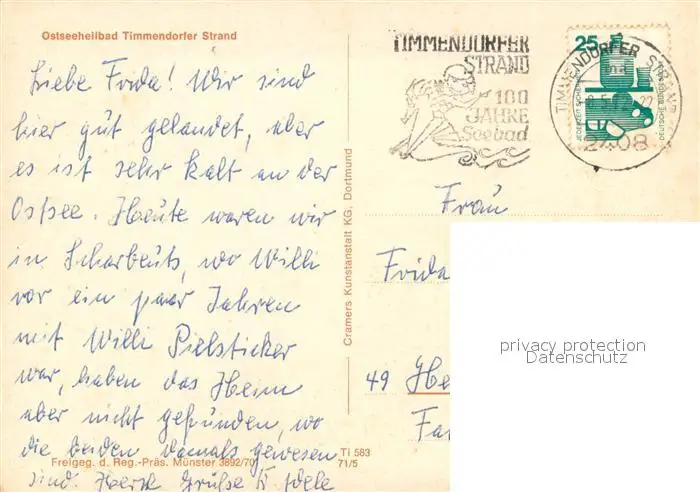 Ostseeheilbad Timmendorfer Strand
Liebe Frida! Wir sind
hier gut gelandet, aber
es ist sehr kalt an der
Ostsee. Heute waren wir
in Scharbeutz, wo Willi
vor ein paar Jahren
mit Willi Pielsticker
war, haben das Heim
aber nicht gefunden, wo
die beiden damals gewesen
sind. Herzl Grüße
Freigeg. d. Reg.-Präs. Münster 3892/70
TI 583
71/5
Cramers Kunstanstalt KG, Dortmund
TIMMENDORFER
STRAND
100
JAHRE
Seebad
TIMMENDORFER STRAND
2408
25
JEDERZEIT SICHERHEIT
DEUTSCHE BUNDESPOST
Frau
Frida
49 He
privacy protection
Datenschutz